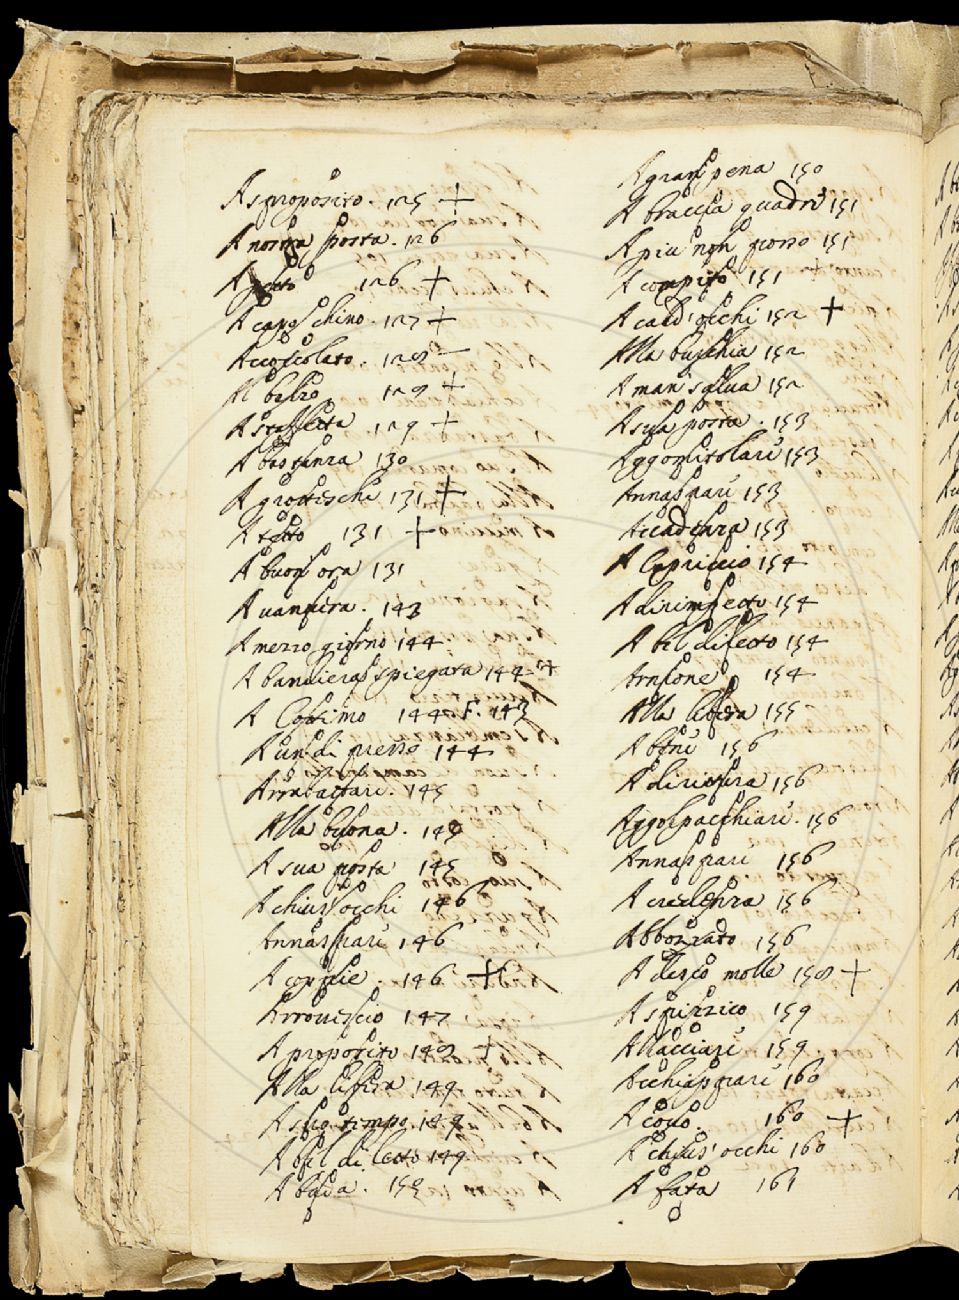 A sproposito. 125 +
A nostra posta. 126
A petto 126 +
A capo chino. 127 +
Accoccolato. 128 —
Al balzo 129 +
A staffetta 129 +
A bastanza 130
A grotteschi 131 +
A tetto 131 +
A buon ora 131
A vanvera. 143
A mezzo giorno 144
A bandiera spiegata 144
A 144. F. 143
A un di presso 144
Arrabattare. 145
Alla buona. 145
A sua posta 145
A chius' occhi 146
Annaspare 146
A coppie. 146 +
Arrovescio 147
A proposito 148 +
Alla libera 149
A suo tempo. 149
A bel diletto 149
A bada. 150
A gran pena 150
A braccia quadre 151
A piu non posso 151
A compito 151
A cald' occhi 152 +
Alla buschia 152
A man salva 152
A sua posta. 153
Aggomitolare 153
Annaspare 153
Accadessa 153
A Capriccio 154
A dirimpetto 154
A bel diletto 154
154
Alla libera 155
A bene 156
A dirittura 156
Aggolpacchiare. 156
Annaspare 156
A credenza 156
Abbozzato 156
A desco molle 158 +
A spizzico 159
Allacciare 159
Acchiappare 160
A covo. 160 +
A chius' occhi 160
A fata 161